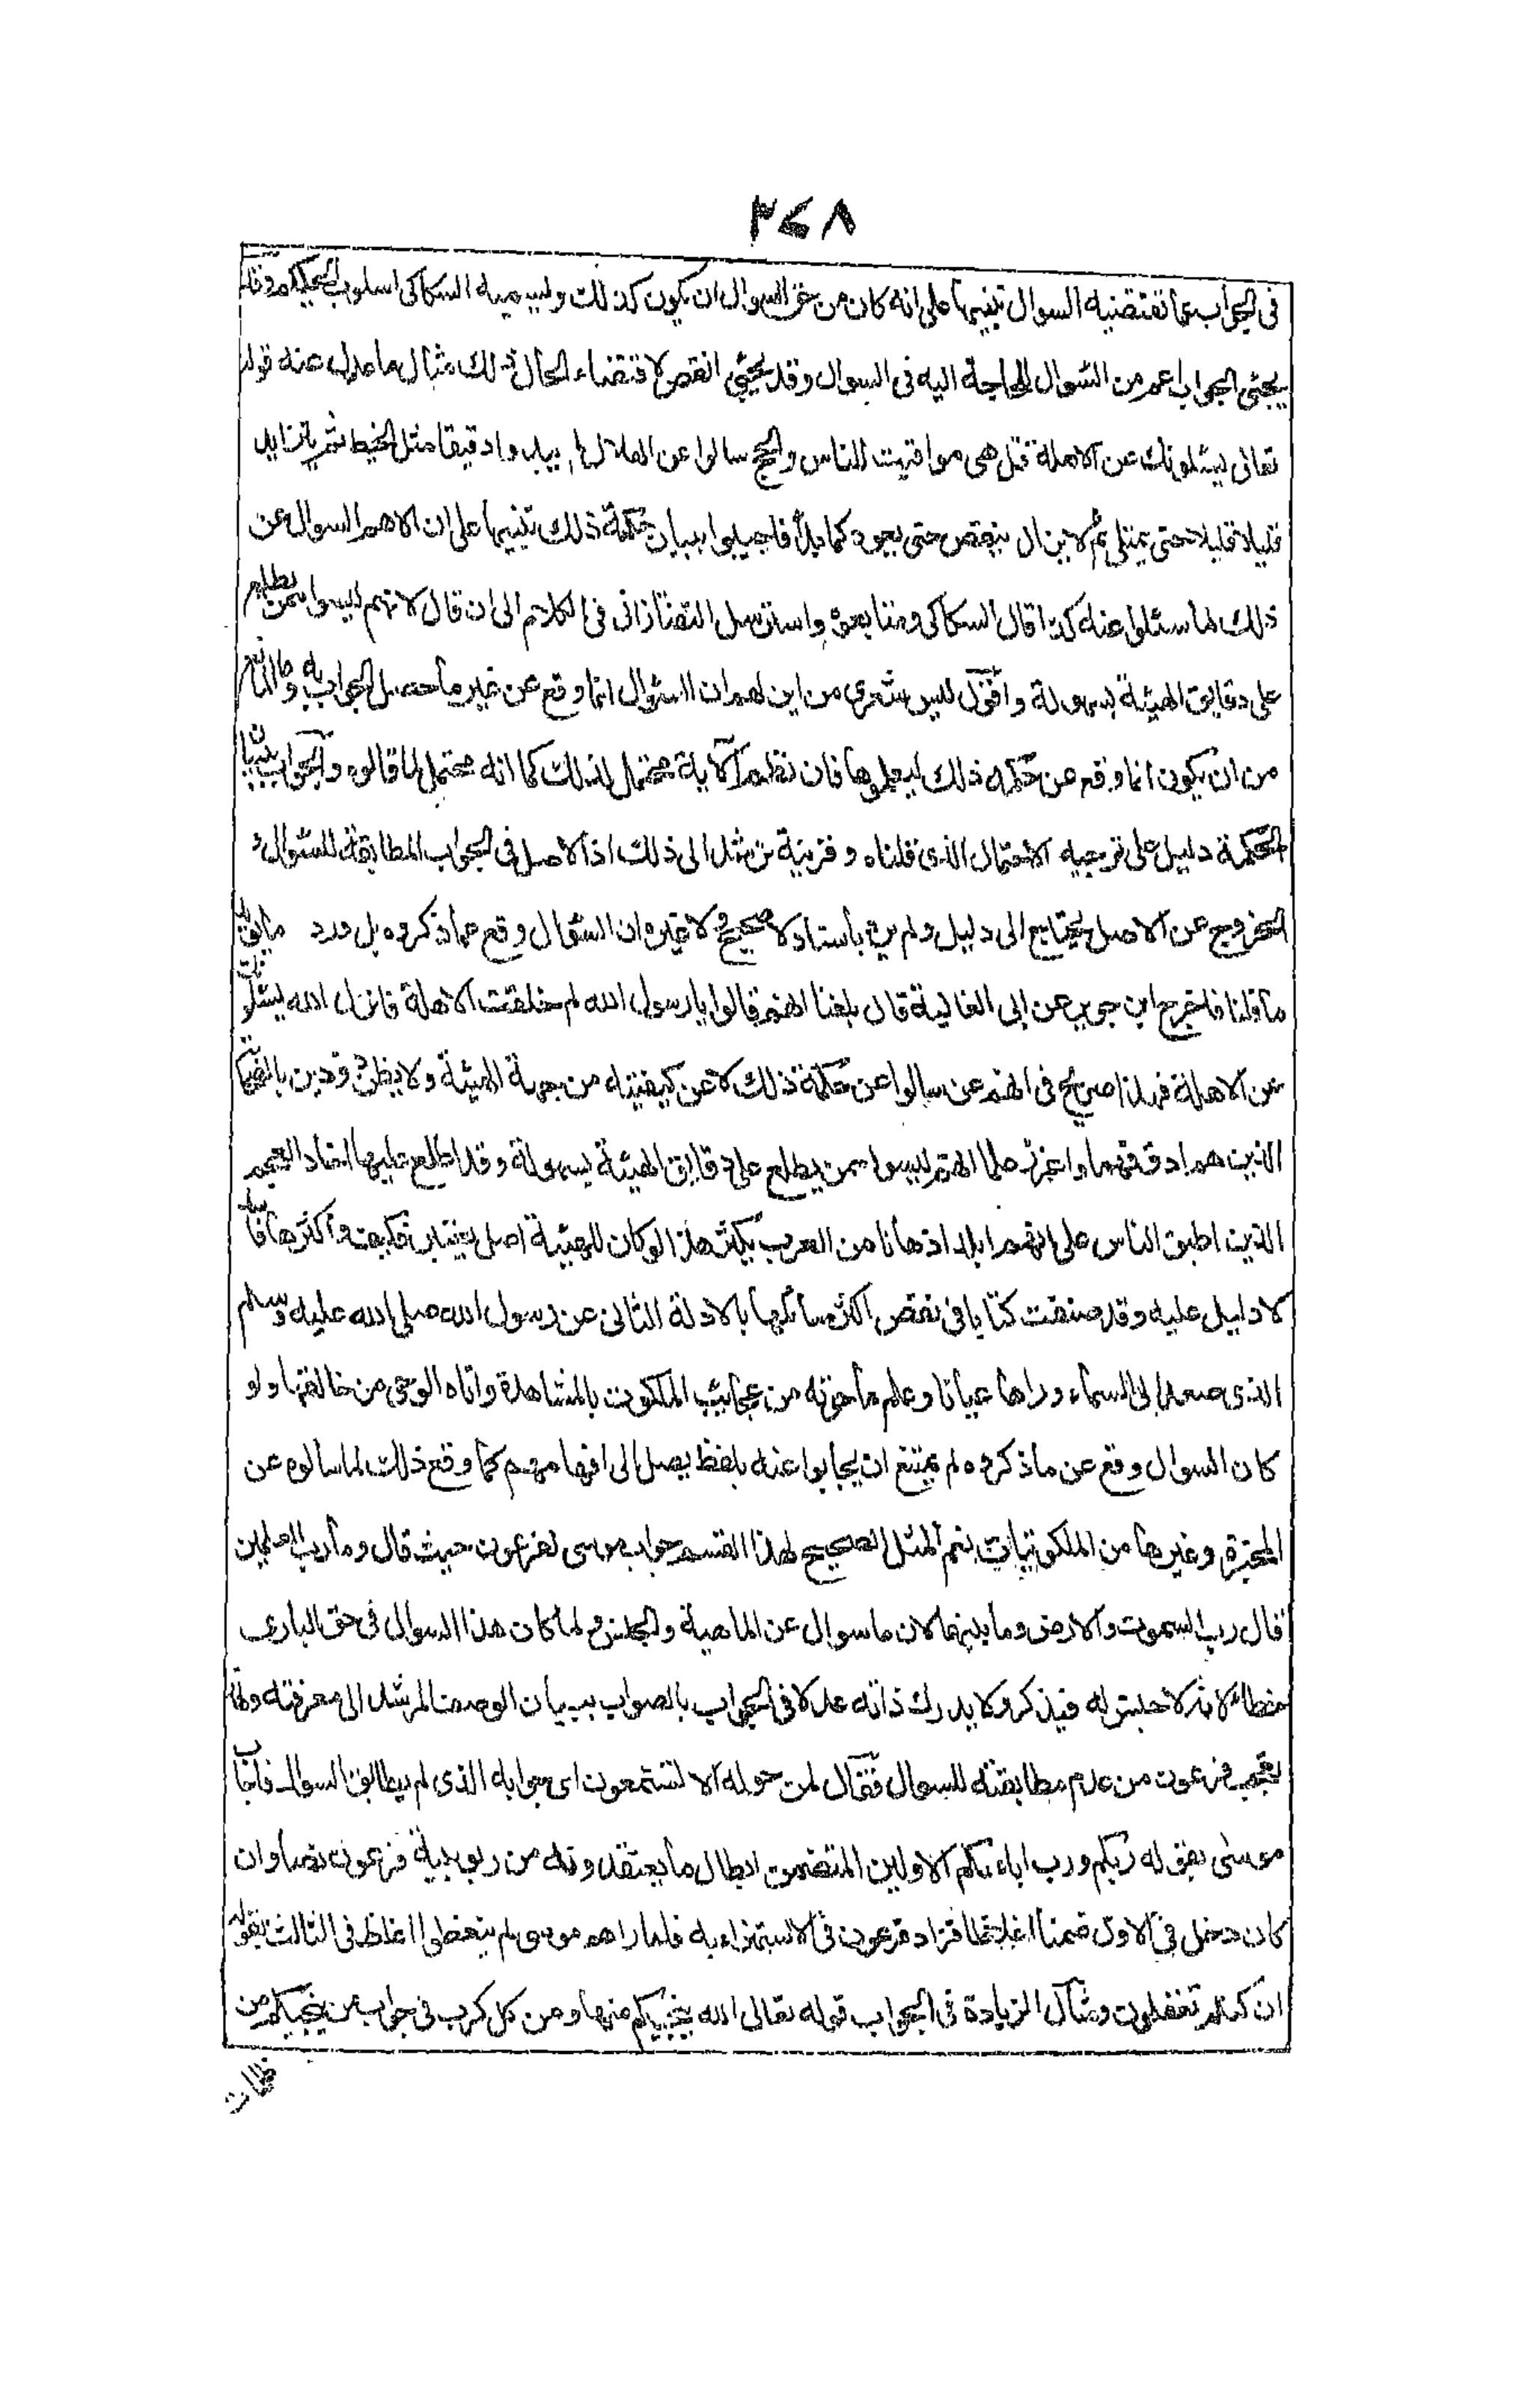 ٣٤٨
فى الجواب عما تقتضيه السوال تنبيها على انه كان من حق السوال ان يكون كذلك وليسميه السكاكى اسلوب الحكيم وقد
يجئى الجواب اعم من السوال للحاجة اليه فى السوال وقد يجيئ انقص لاقتضاء الحال ذلك مثال ما عدل عنه قوله
تعالى يسئلونك عن الاهلة قل هى مواقيت للناس والحج سالوا عن الهلال لم يبدوا دقيقا مثل الخيط ثم يتزايد
قليلا قليلا حتى يمتلى ثم لا يزال ينقص حتى يعود كما بدأ فاجيبوا ببيان حكمة ذلك تنبيها على ان الاهم السوال عن
ذلك لما سئلوا عنه كذا قال السكاكى ومتابعوه واسترسل التفتازانى فى الكلام الى ان قال لانهم ليسوا ممن يطلع
على دقايق الهيئة بسهولة واقول ليس شعرى من اين لهم ان السؤال انما وقع عن غير ما حصل الجواب به وما المانع
من ان يكون انما وقع عن حكمة ذلك ليعلموها فان نظم الآية محتمل لذلك كما انه محتمل لما قالوه والجواب ببيان
الحكمة دليل على ترجيه الاحتمال الذى قلناه وقرينة ترشد الى ذلك اذ الاصل فى الجواب المطابقة للسئوال و
الخروج عن الاصل يحتاج الى دليل ولم يرد باسناد لا صحيح ولا غيره ان السؤال وقع عما ذكروه بل ورد ما يؤيد
ما قلنا فاخرج ابن جرير عن ابى العالية قال بلغنا انهم قالوا يا رسول الله لم خلقت الاهلة فانزل الله يسئلونك
عن الاهلة فهذا صريح فى انهم عن سالوا عن حكمة ذلك لا عن كيفيته من جهة الهيئة ولا يظن ذو دين بالصحابة
الذين هم ادق فهما واغزر علما انهم ليسوا ممن يطلع على دقايق الهيئة بسهولة وقد اطلع عليها احاد العجم
الذين اطبق الناس على انهم ابلد اذهانا من العرب بكثير هذا لو كان للهيئة اصل يعتبر فكيف واكثرها فاسد
لا دليل عليه وقد صنفت كتابا فى نقص اكثر مسائلها بالادلة الثانى عن رسول الله صلى الله عليه وسلم
الذى صعد الى السماء وراها عيانا وعلم ما حوته من عجائب الملكوت بالمشاهدة واتاه الوحى من خالقها ولو
كان السوال وقع عن ما ذكروه لم يمتنع ان يجابوا عنه بلفظ يصل الى افهامهم كما وقع ذلك لما سالوه عن
المجرة وغيرها من الملكوتيات نعم المثل الصحيح لهذا القسم جواب موسى لفرعون حيث قال وما رب العلمين
قال رب السموت والارض وما بينهما لان ما سوال عن الماهية والجنس و لما كان هذا السوال فى حق البارى
خطاء لانه لا جنس له فيذكر ولا يدرك ذاته عدلا فى الجواب بالصواب ببيان الوصف المرشد الى معرفته ولهذا
تعجب فرعون من عدم مطابقته للسوال فقال لمن حوله الا تستمعون اى جوابه الذى لم يطابق السوال فاجاب
موسى بقوله ربكم ورب اباءكم الاولين المتضمن ابطال ما يعتقدونه من ربوبية فرعون نصا وان
كان دخل فى الاول ضمنا اغلاظا فزاد فرعون فى الاستهزاء به فلما راهم موسى لم يتعظوا اغلظ فى الثالث بقوله
ان كنتم تعقلون ومثال الزيادة فى الجواب قوله تعالى الله ينجيكم منها ومن كل كرب فى جواب من ينجيكم من
ظلمات